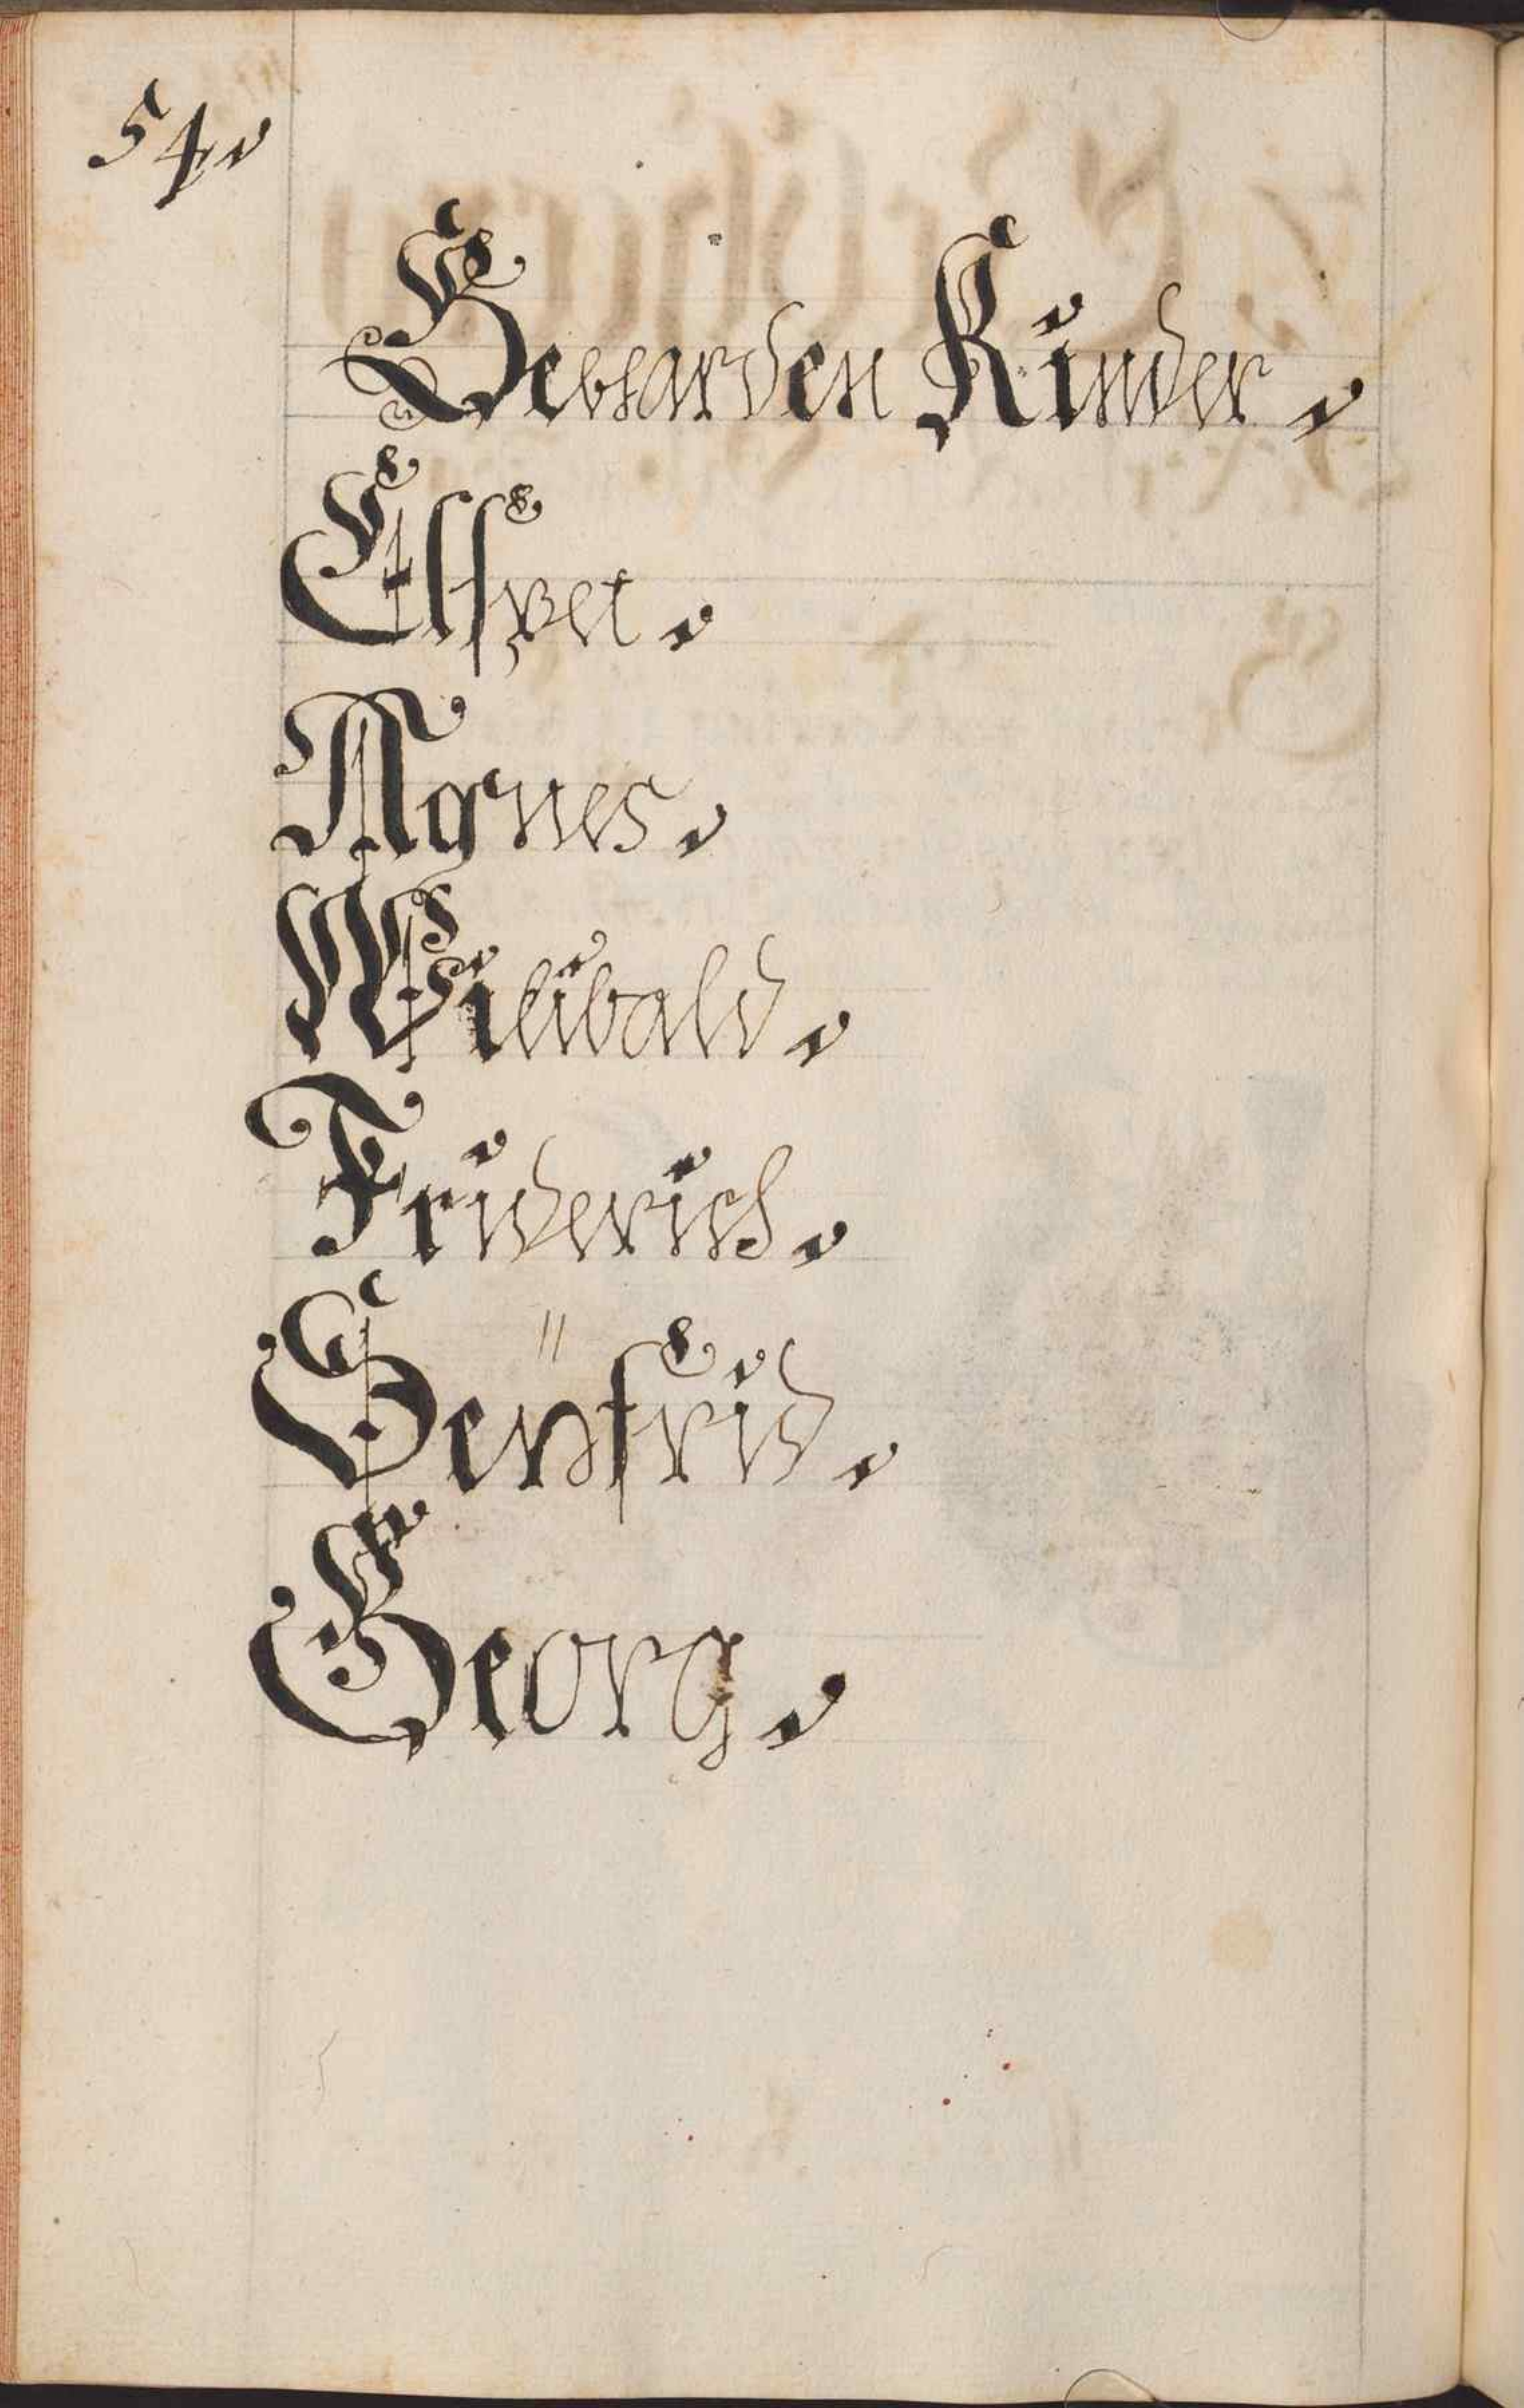 54.
Gebharden Kinder.
Elspet.
Agnes.
Wilibald.
Friderich.
Senfrid.
Georg.